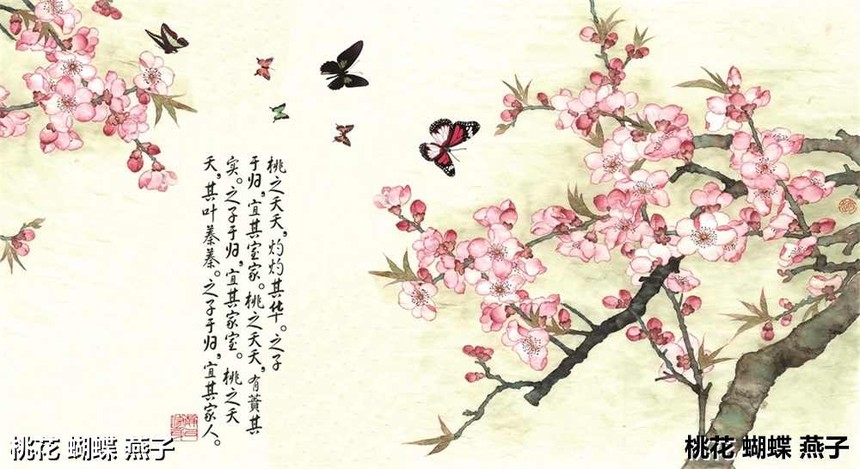 桃之夭夭，灼灼其华。之子
于归，宜其室家。桃之夭夭，有蕡其
实。之子于归，宜其家室。桃之夭
夭，其叶蓁蓁。之子于归，宜其家人。
桃花 蝴蝶 燕子
桃花 蝴蝶 燕子